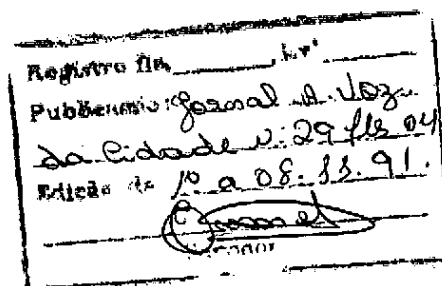 Registro fls. ______, Lvº ______
Publicado: Jornal A Voz
da Cidade n: 29 fls 04
Edição de 1º a 08.11.91.